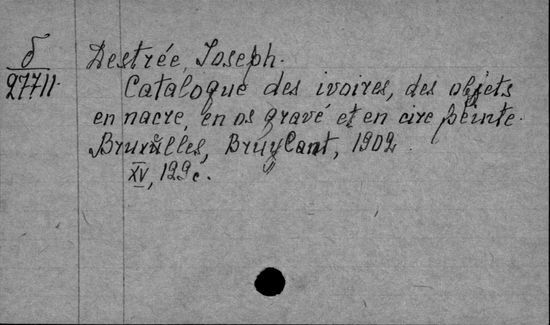 б Destrée, Joseph.
27711. Catalogue des ivoires, des objets
en nacre, en os gravé et en cire peinte.
Bruxelles, Bruylant, 1902.
XV, 129 c.